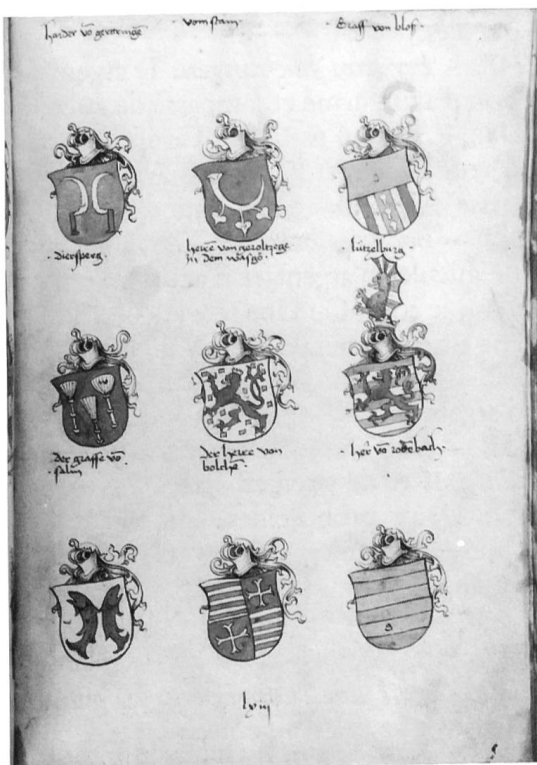 vom stain
Graff von bloß
Diersperg
herre von geroltzege
in dem waßgo
lützelburg
der graffe vō
salm
Der herre von
bolchē
her vō rodēbach
lviij